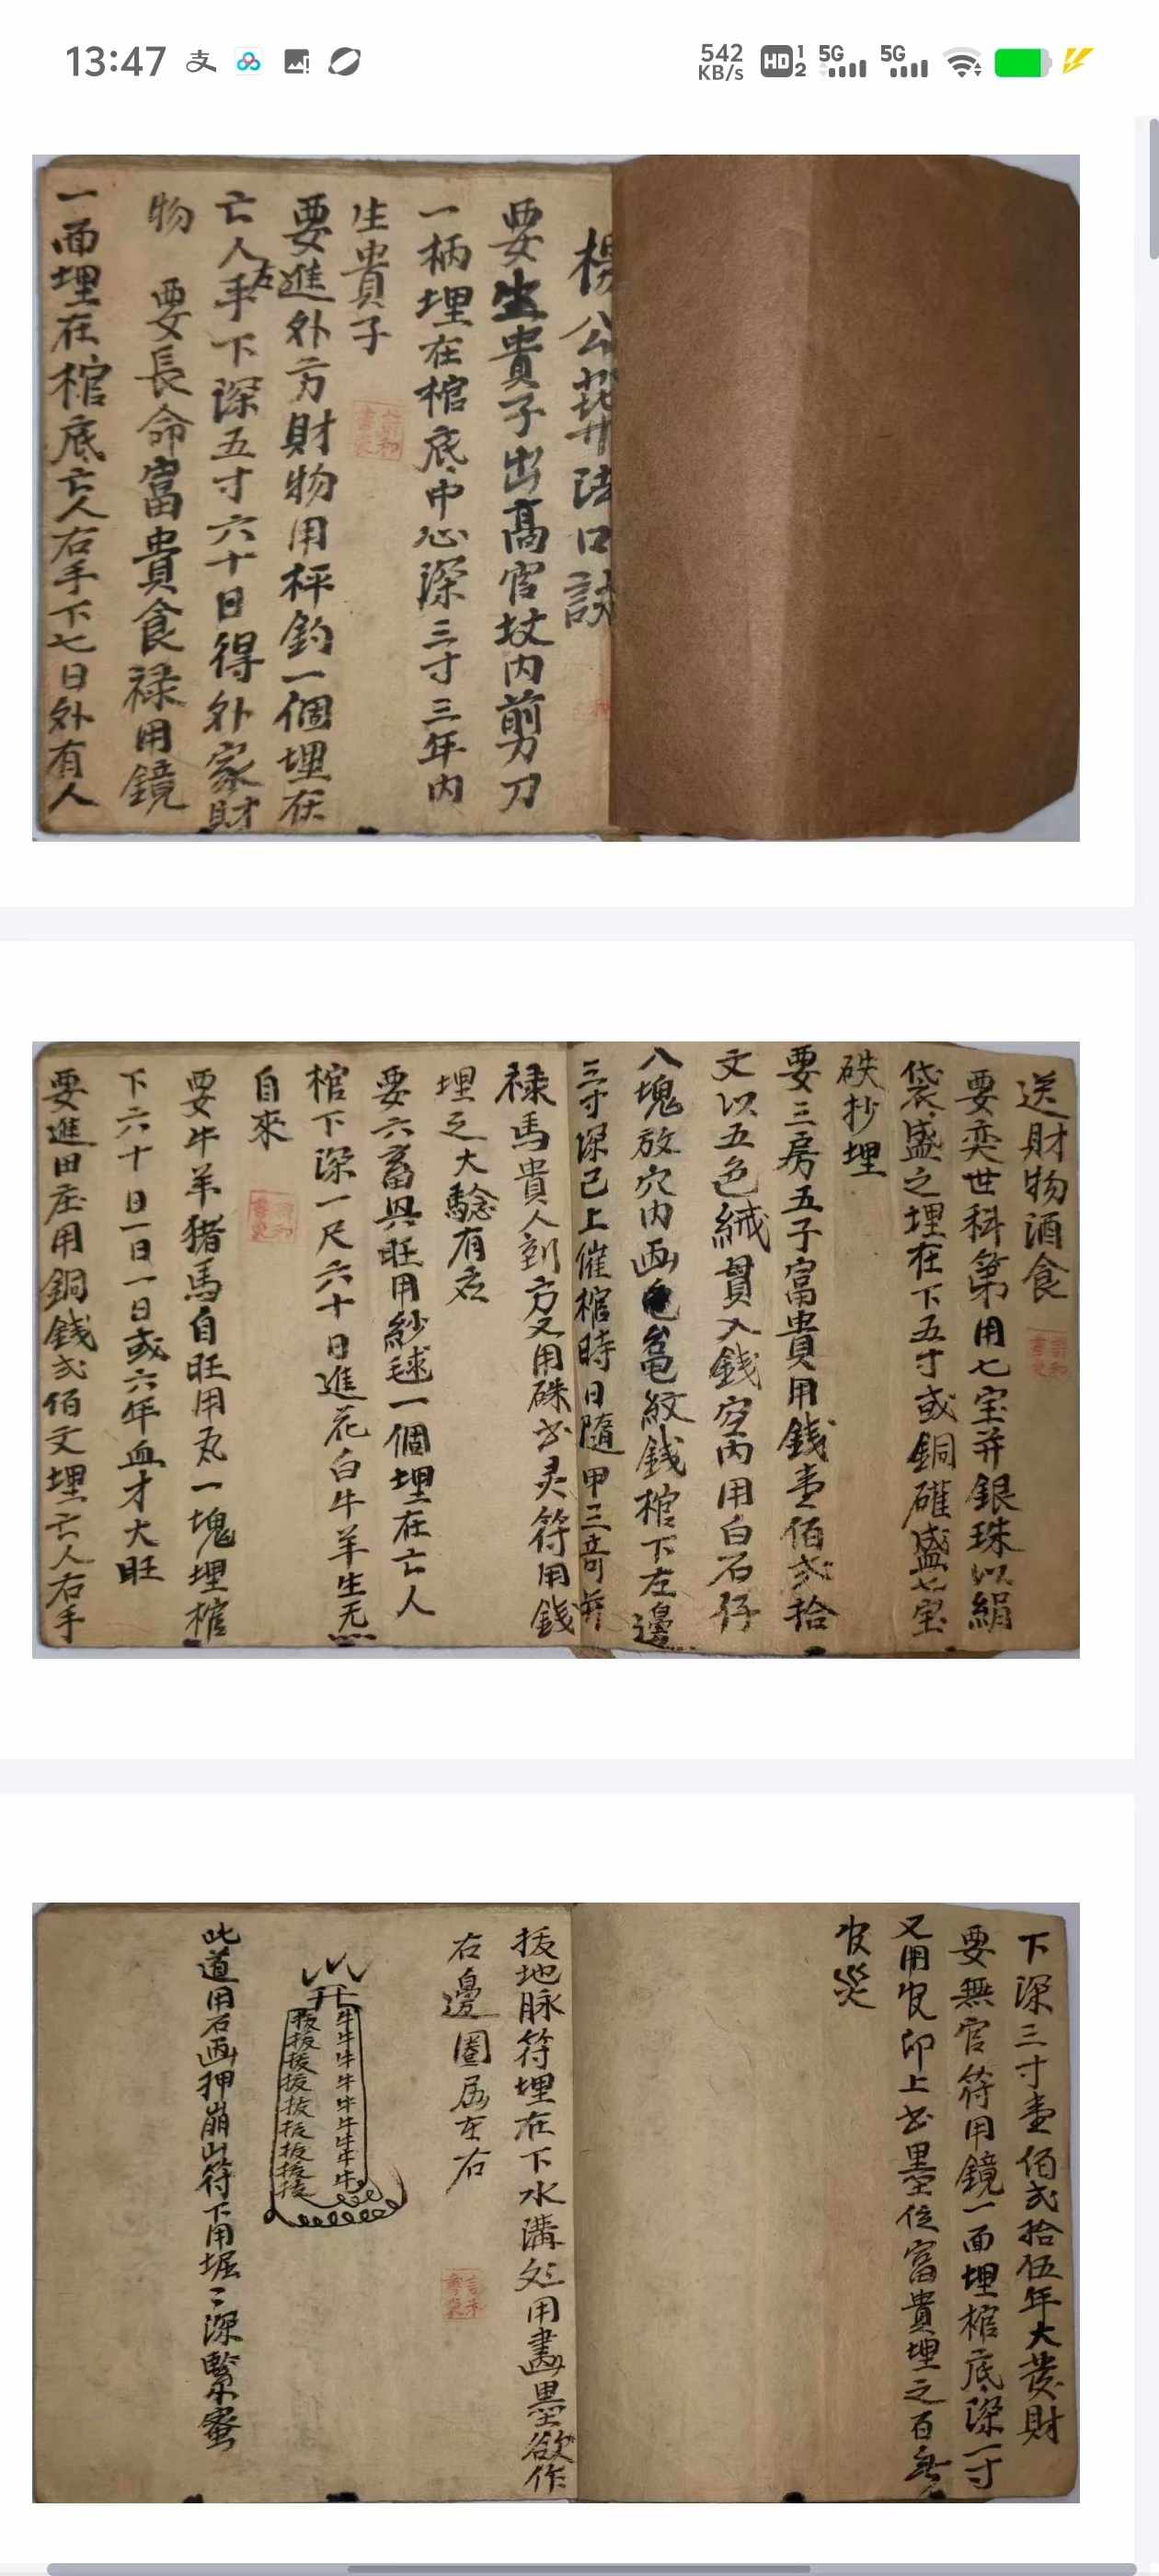 13:47
542 KB/s
HD 1 2
5G
5G
楊公葬法口訣
要生貴子出高官坟内剪刀
一柄埋在棺底中心深三寸三年内
生貴子
要進外方財物用枰鈎一個埋在
亡人左手下深五寸六十日得外家財
物 要長命富貴食禄用鏡
一面埋在棺底亡人右手下七日外有人
送財物酒食
要奕世科第用七宝并銀珠以絹
袋盛之埋在下五寸或銅礶盛七宝
抄埋
要三房五子富貴用錢壹佰弍拾
文以五色絨貫入錢空内用白石仔
八塊放穴内画龜紋錢棺下左邊
三寸深已上催棺時日隨甲三奇并
禄馬貴人到方又用硃书灵符用錢
埋之大驗有名
要六畜興旺用紗毬一個埋在亡人
棺下深一尺六十日進花白牛羊生无
自來
要牛羊猪馬自旺用一塊埋棺
下六十日一日一日或六年血才大旺
要進田庄用銅錢弍佰文埋亡人右手
下深三寸壹佰弍拾伍年大發財
要無官符用鏡一面埋棺底深一寸
又用印上书墨位富貴埋之百無
災
拔地脉符埋在下水溝処用畫墨欲作
右邊圖居左右
牛牛牛牛牛牛牛牛
拔拔拔拔拔拔拔拔拔
此道用石画押崩山符下用堀二深緊密